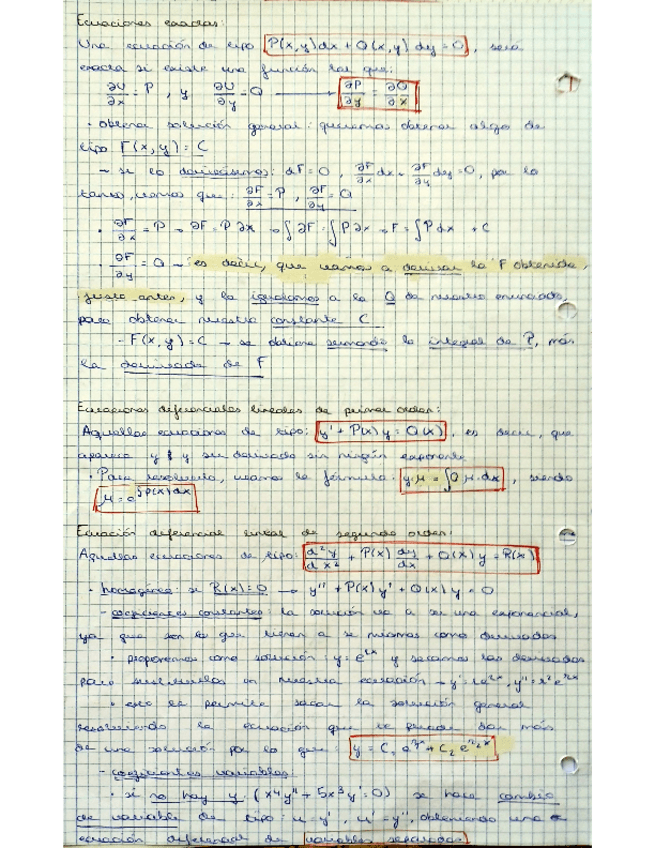 Ecuaciones exactas:
Una ecuación de tipo P(x,y)dx + Q(x,y)dy = 0, será
exacta si existe una función tal que:
∂U/∂x = P, y ∂U/∂y = Q → ∂P/∂y = ∂Q/∂x
· obtener solución general: queremos obtener algo de
tipo F(x,y) = C
- si lo derivásemos: dF = 0, ∂F/∂x dx + ∂F/∂y dy = 0, por lo
tanto, vemos que: ∂F/∂x = P, ∂F/∂y = Q
· ∂F/∂x = P → ∂F = P∂x → ∫∂F = ∫P∂x → F = ∫P dx + C
· ∂F/∂y = Q → es decir, que vamos a derivar la F obtenida
justo antes, y la igualamos a la Q de nuestro enunciado,
para obtener nuestra constante C
- F(x,y) = C → se obtiene sumando la integral de P, más
la derivada de F
Ecuaciones diferenciales lineales de primer orden:
Aquellas ecuaciones de tipo: y' + P(x)y = Q(x), es decir, que
aparezca y y su derivada sin ningún exponente
· Para resolverlo, usamos la fórmula: y·μ = ∫Q·μ·dx, siendo
μ = e^∫P(x)dx
Ecuación diferencial lineal de segundo orden:
Aquellas ecuaciones de tipo: d²y/dx² + P(x) dy/dx + Q(x)y = R(x)
· homogénea: si R(x) = 0 → y'' + P(x)y' + Q(x)y = 0
- coeficientes constantes: la solución va a ser una exponencial,
ya que son las que tienen a si mismas como derivadas
· proponemos como solución: y = e^rx y sacamos las derivadas
para sustituirlas en nuestra ecuación → y' = re^rx, y'' = r²e^rx
· esto te permite sacar la solución general
resolviendo la ecuación que te puede dar más
de una solución por lo que: y = C₁e^r₁x + C₂e^r₂x
- coeficientes variables:
· si no hay y: (x⁴y'' + 5x³y' = 0) se hace cambio
de variable de tipo: u = y', u' = y'', obteniendo una
ecuación diferencial de variables separadas